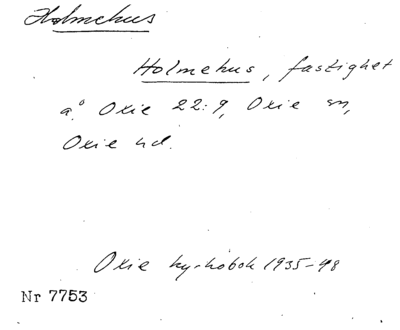 Holmehus
Holmehus, fastighet
å Oxie 22:9, Oxie sn,
Oxie hd.
Oxie kyrkobok 1935-48
Nr 7753